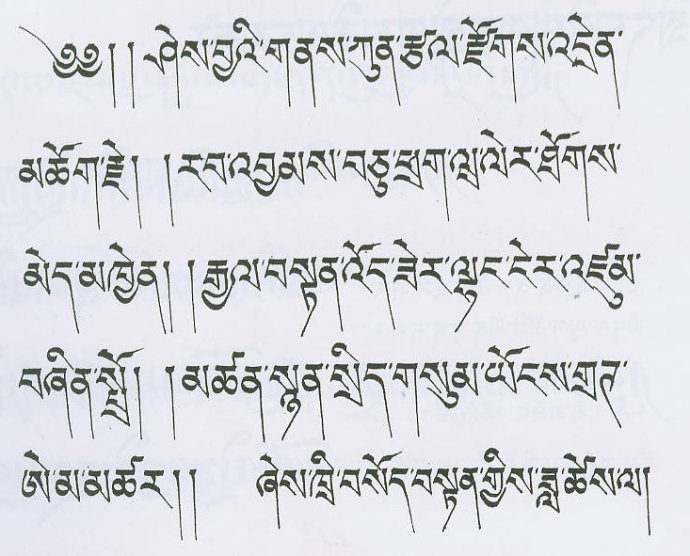 ༄༅། །ཤེས་བྱའི་གནས་ཀུན་རྩལ་རྫོགས་འདྲེན་
མཆོག་རྗེ། །རབ་འབྱམས་བཅུ་ཕྲག་ལྷ་ལེར་ཐོགས་
མེད་མཁྱེན། །རྒྱལ་བསྟན་འོད་ཟེར་ལྷང་ངེར་འཛུམ་
བཞིན་སྤྲོ། །མཚན་སྙན་སྲིད་གསུམ་ཡོངས་གྲག་
ཨེ་མ་མཚར། ། ཞེས་ཁྲི་བསོད་བསྟན་གྱིས་ཟླ་ཚེས་ལ།